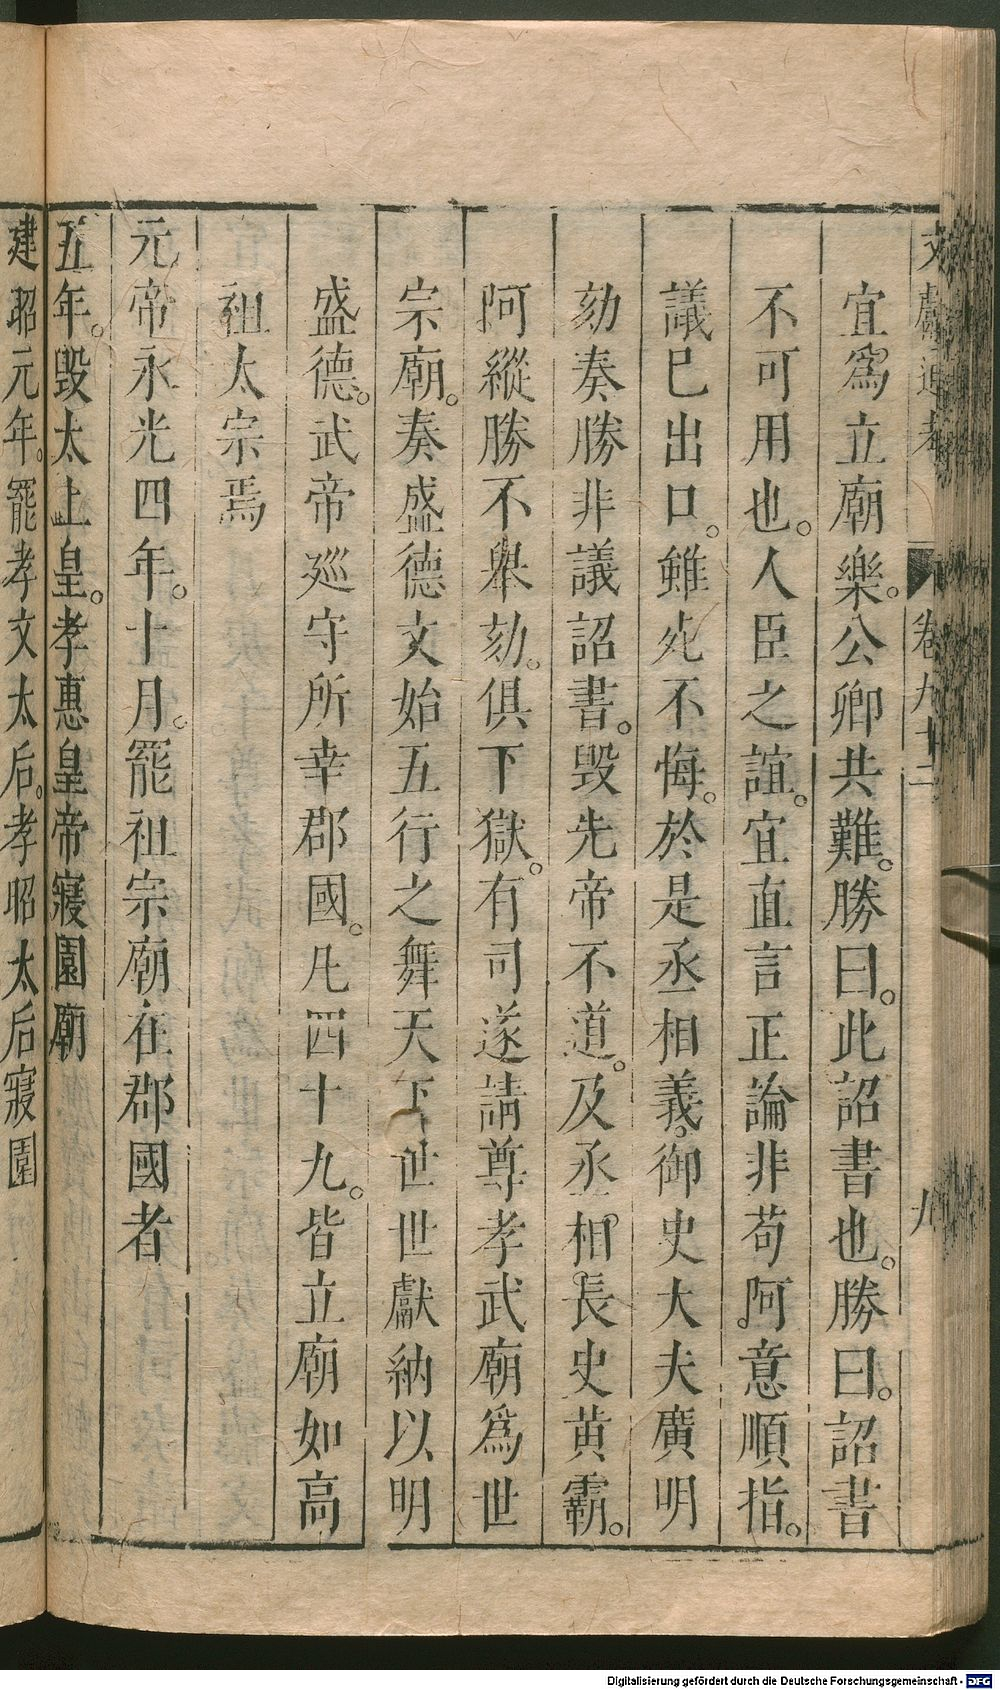 文獻通考 卷九十二 九
宜爲立廟樂。公卿共難。勝曰。此詔書也。勝曰。詔書
不可用也。人臣之誼。宜直言正論非苟阿意順指。
議已出口。雖死不悔。於是丞相義。御史大夫廣明
劾奏勝非議詔書。毀先帝不道。及丞相長史黃霸。
阿縱勝不舉劾。俱下獄。有司遂請尊孝武廟爲世
宗廟。奏盛德文始五行之舞天下世世獻納以明
盛德。武帝巡守所幸郡國。凡四十九。皆立廟如高
祖太宗焉
元帝永光四年。十月。罷祖宗廟在郡國者
五年。毀太上皇。孝惠皇帝寢園廟
建昭元年。罷孝文太后。孝昭太后寢園
Digitalisierung gefördert durch die Deutsche Forschungsgemeinschaft - DFG